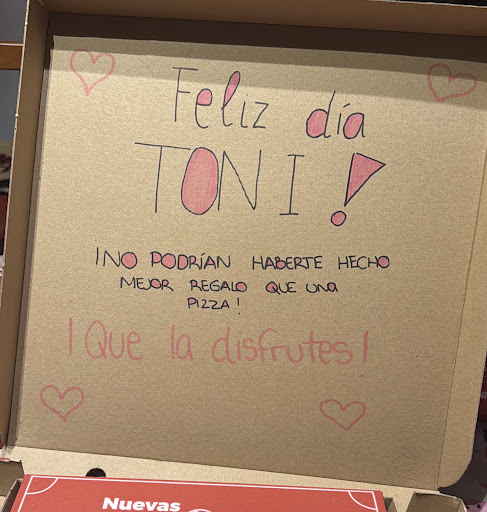 Feliz día
TONI!
¡NO PODRÍAN HABERTE HECHO
MEJOR REGALO QUE UNA
PIZZA!
¡Que la disfrutes!
Nuevas